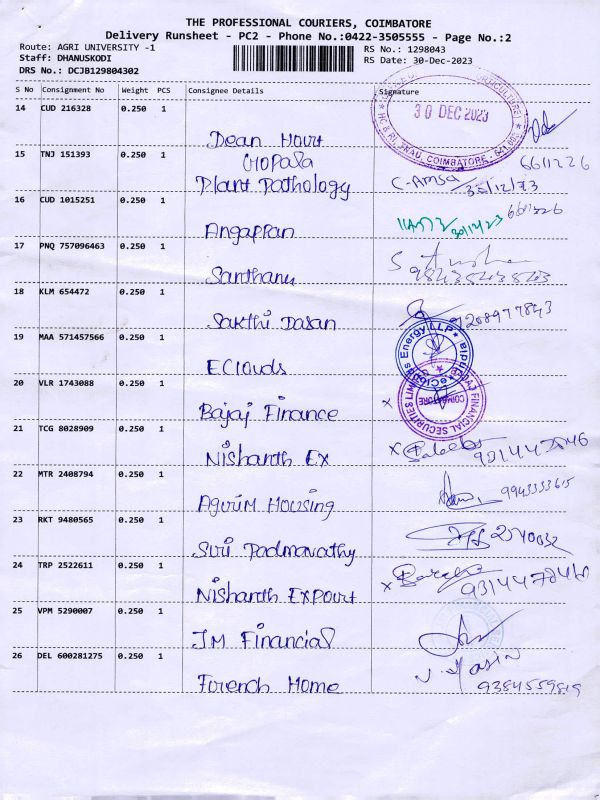 THE PROFESSIONAL COURIERS, COIMBATORE
Delivery Runsheet - PC2 - Phone No.:0422-3505555 - Page No.:2
Route: AGRI UNIVERSITY -1
RS No.: 1298043
Staff: DHANUSKODI
RS Date: 30-Dec-2023
DRS No.: DCJB129804302
S No Consignment No Weight PCS Consignee Details Signature
14 CUD 216328 0.250 1
30 DEC 2023
COIMBATORE
Dean Hort
15 TNJ 151393 0.250 1
Gopala
6611226
Plant Pathology
16 CUD 1015251 0.250 1
Angappan
17 PNQ 757096463 0.250 1
Santhanu
18 KLM 654472 0.250 1
Sakthi Dasan
19 MAA 571457566 0.250 1
Energy LLP
EClouds
20 VLR 1743088 0.250 1
FINANCIAL SECURITIES
COIMBATORE
Bajaj Finance
21 TCG 8028909 0.250 1
Nishanth Ex
22 MTR 2408794 0.250 1
9943333615
Agrim Housing
23 RKT 9480565 0.250 1
Suri Padmavathy
24 TRP 2522611 0.250 1
Nishanth Export
25 VPM 5290007 0.250 1
JM Financial
26 DEL 600281275 0.250 1
9384559819
French Home